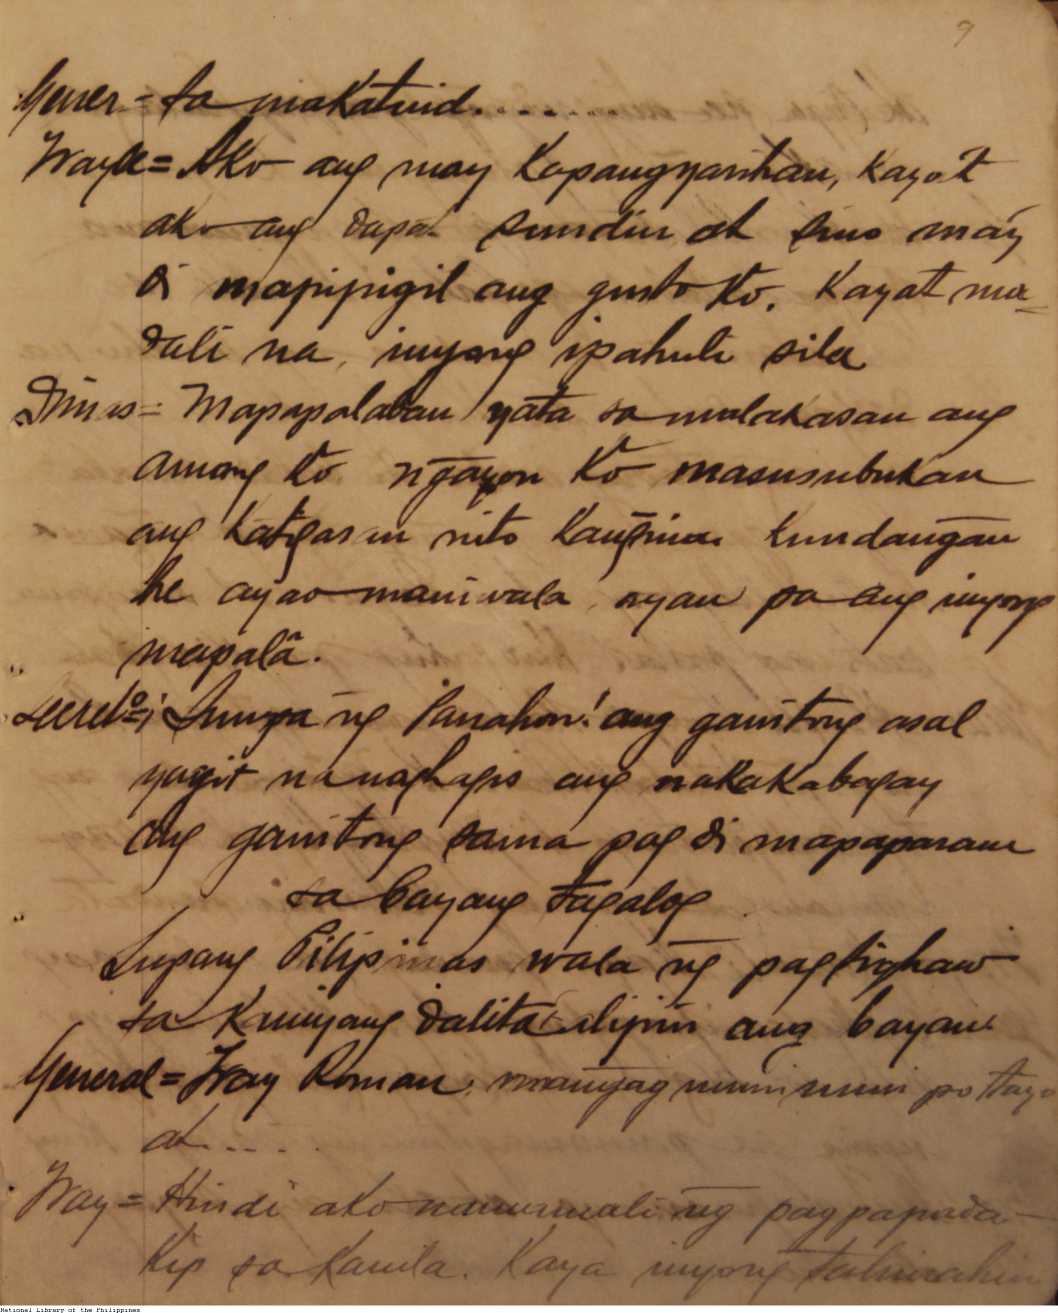 9
Gener = Sa makatuid........
Frayle = Ako ang may kapangyarihan, kayat
ako ang dapat sundin at sino may
di mapipigil ang gusto ko. Kayat ma=
dali na, inyong ipahuli sila
Dimas = Mapapalaban yata sa malakasan ang
among ko ngayon ko masusubukan
ang katigasan nito kanĝina. kundanĝan
he ayao maniwala, ayan pa ang inyong
mapalâ.
Secret.º = ¡ Sumpa nĝ Panahon! ang ganitong asal
yagit na naghapis ang nakakabagay
ang ganitong sama pag di mapaparam
sa bayang tagalog
Lupang Pilipinas wala nĝ pagtighaw
sa kaniyang dalita alipin ang bayan.
General = Fray Roman, mangag numinuni po tayo
at....
Fray = Hindi ako nanunuali nĝ pagpapada-
kip sa kanila. Kaya inyong
National Library of the Philippines